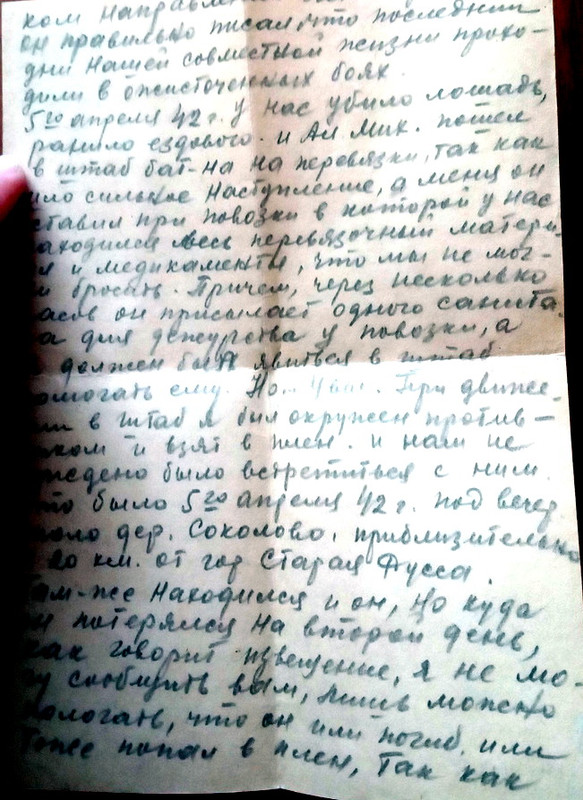 ком направлен
он правильно писал, что последнии
дни нашей совместной жизни прохо-
дили в ожисточенных боях.
5го апреля 42 г. у нас убило лошадь,
ранило ездового. и Ал. Мик. пошел
в штаб бат-на на перевязки, так как
шло сильное наступление, а меня он
ставил при повозки в которой у нас
аходился весь перевязочный матери-
л и медикаменты, что мы не мог-
и бросать. Причем, через несколько
асов он присылает одного санита-
а для дежурства у повозки, а
должен был явиться в штаб
омогать ему. Но.. Увы. При движе-
ии в штаб я был окружен против-
ком и взят в плен. и нам не
ждено было встретиться с ним.
то было 5го апреля 42 г. под вечер
коло дер. Соколово, приблизительно
20 км. от гор Старая Русса.
ам-же находился и он, Но куда
н потерялся на второй день,
как говорит извещение, я не мо-
гу сообщить вам, лишь можно
пологать, что он или погиб, или
тоже попал в плен, Так как